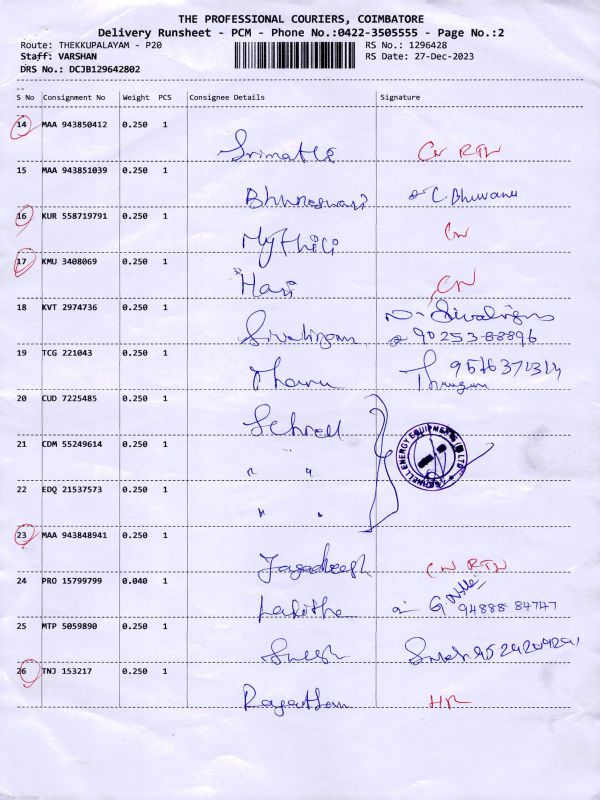 THE PROFESSIONAL COURIERS, COIMBATORE
Delivery Runsheet - PCM - Phone No.:0422-3505555 - Page No.:2
Route: THEKKUPALAYAM - P20 RS No.: 1296428
Staff: VARSHAN RS Date: 27-Dec-2023
DRS No.: DCJB129642802
S No Consignment No Weight PCS Consignee Details Signature
14 MAA 943850412 0.250 1
Srimathi CN RTN
15 MAA 943851039 0.250 1
Bhuneswari C. Bhuvana
16 KUR 558719791 0.250 1
Mythili CN
17 KMU 3408069 0.250 1
Hari CN
18 KVT 2974736 0.250 1
Sivalingam N. Sivalingam
90253-88896
19 TCG 221043 0.250 1
20 CUD 7225485 0.250 1
Schnell
21 CDM 55249614 0.250 1
" "
22 EDQ 21537573 0.250 1
" "
23 MAA 943848941 0.250 1
Jagadeesh CN RTN
24 PRO 15799799 0.040 1
Lalitha 94888 84747
25 MTP 5059890 0.250 1
Suresh
26 TNJ 153217 0.250 1